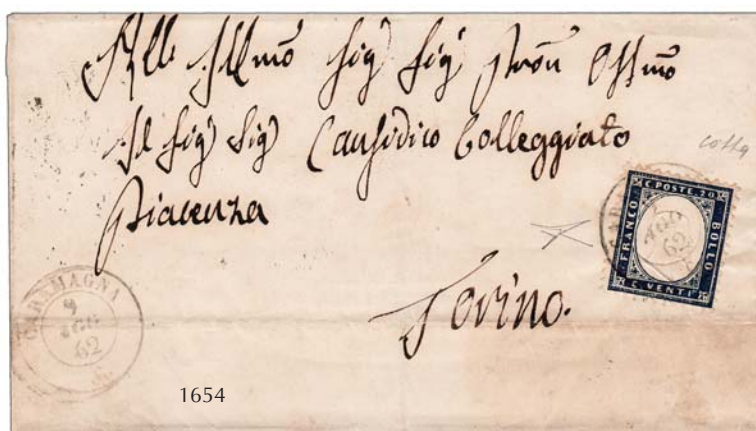 All Illmo Sig Sig Pron Ossmo
Il Sig Sig Causidico Colleggiato
Piacenza
Torino.
costa
C. POSTE. 20
FRANCO
BOLLO
C. VENTI
62
CARAMAGNA
9
AGO
62
1654